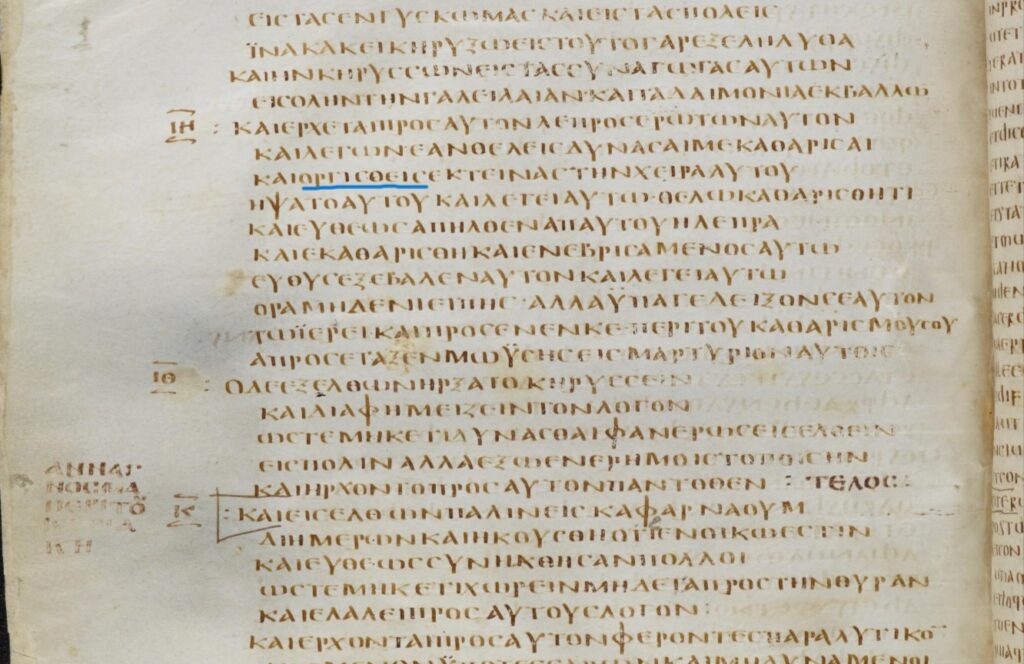 ΕΙϹΤΑϹΕΝΓΥϹΚΩΜΑϹΚΑΙΕΙϹΤΑϹΠΟΛΕΙϹ
ΪΝΑΚΑΚΕΙΚΗΡΥΞΩΕΙϹΤΟΥΤΟΓΑΡΕΞΕΛΗΛΥΘΑ
ΚΑΙΗΝΚΗΡΥϹϹΩΝΕΙϹΤΑϹϹΥΝΑΓΩΓΑϹΑΥΤΩΝ
ΕΙϹΟΛΗΝΤΗΝΓΑΛΕΙΛΑΙΑΝ·ΚΑΙΤΑΔΑΙΜΟΝΙΑΕΚΒΑΛΛΩ̅
ΙΗ : ΚΑΙΕΡΧΕΤΑΙΠΡΟϹΑΥΤΟΝΛΕΠΡΟϹΕΡΩΤΩΝΑΥΤΟΝ
ΚΑΙΛΕΓΩΝΕΑΝΘΕΛΕΙϹΔΥΝΑϹΑΙΜΕΚΑΘΑΡΙϹΑΙ
ΚΑΙΟΡΓΙϹΘΕΙϹΕΚΤΕΙΝΑϹΤΗΝΧΕΙΡΑΑΥΤΟΥ
ΗΨΑΤΟΑΥΤΟΥΚΑΙΛΕΓΕΙΑΥΤΩ·ΘΕΛΩΚΑΘΑΡΙϹΘΗΤΙ
ΚΑΙΕΥΘΕΩϹΑΠΗΛΘΕΝΑΠΑΥΤΟΥΗΛΕΠΡΑ
ΚΑΙΕΚΑΘΑΡΙϹΘΗΚΑΙΕΝΕΒΡΙϹΑΜΕΝΟϹΑΥΤΩ
ΕΥΘΥϹΕΞΕΒΑΛΕΝΑΥΤΟΝΚΑΙΛΕΓΕΙΑΥΤΩ
ΟΡΑΜΗΔΕΝΙΕΙΠΗϹ·ΑΛΛΑΫΠΑΓΕΔΕΙΞΟΝϹΕΑΥΤΟΝ
ΤΩΪΕΡΕΙ·ΚΑΙΠΡΟϹΕΝΕΝΚΕ·ΠΕΡΙΤΟΥΚΑΘΑΡΙϹΜΟΥϹΟΥ
ΑΠΡΟϹΕΤΑΞΕΝΜΩΫϹΗϹΕΙϹΜΑΡΤΥΡΙΟΝΑΥΤΟΙϹ
ΙΘ : ΟΔΕΕΞΕΛΘΩΝΗΡΞΑΤΟΚΗΡΥϹϹΕΙΝ
ΚΑΙΔΙΑΦΗΜΕΙΖΕΙΝΤΟΝΛΟΓΟΝ
ΩϹΤΕΜΗΚΕΤΙΔΥΝΑϹΘΑΙΦΑΝΕΡΩϹΕΙϹΕΛΘΕΙΝ
ΕΙϹΠΟΛΙΝΑΛΛΑΕΞΩΕΝΕΡΗΜΟΙϹΤΟΠΟΙϹΗΝ
ΚΑΙΗΡΧΟΝΤΟΠΡΟϹΑΥΤΟΝΠΑΝΤΟΘΕΝ : ΤΕΛΟϹ:
Κ : ΚΑΙΕΙϹΕΛΘΩΝΠΑΛΙΝΕΙϹΚΑΦΑΡΝΑΟΥΜ
ΔΙΗΜΕΡΩΝΚΑΙΗΚΟΥϹΘΗΟΤΙΕΝΟΙΚΩΕϹΤΙΝ
ΚΑΙΕΥΘΕΩϹϹΥΝΗΧΘΗϹΑΝΠΟΛΛΟΙ
ΩϹΤΕΜΗΚΕΤΙΧΩΡΕΙΝΜΗΔΕΤΑΠΡΟϹΤΗΝΘΥΡΑΝ
ΚΑΙΕΛΑΛΕΙΠΡΟϹΑΥΤΟΥϹΛΟΓΟΝ:
ΚΑΙΕΡΧΟΝΤΑΙΠΡΟϹΑΥΤΟΝΦΕΡΟΝΤΕϹΠΑΡΑΛΥΤΙΚΟ̅